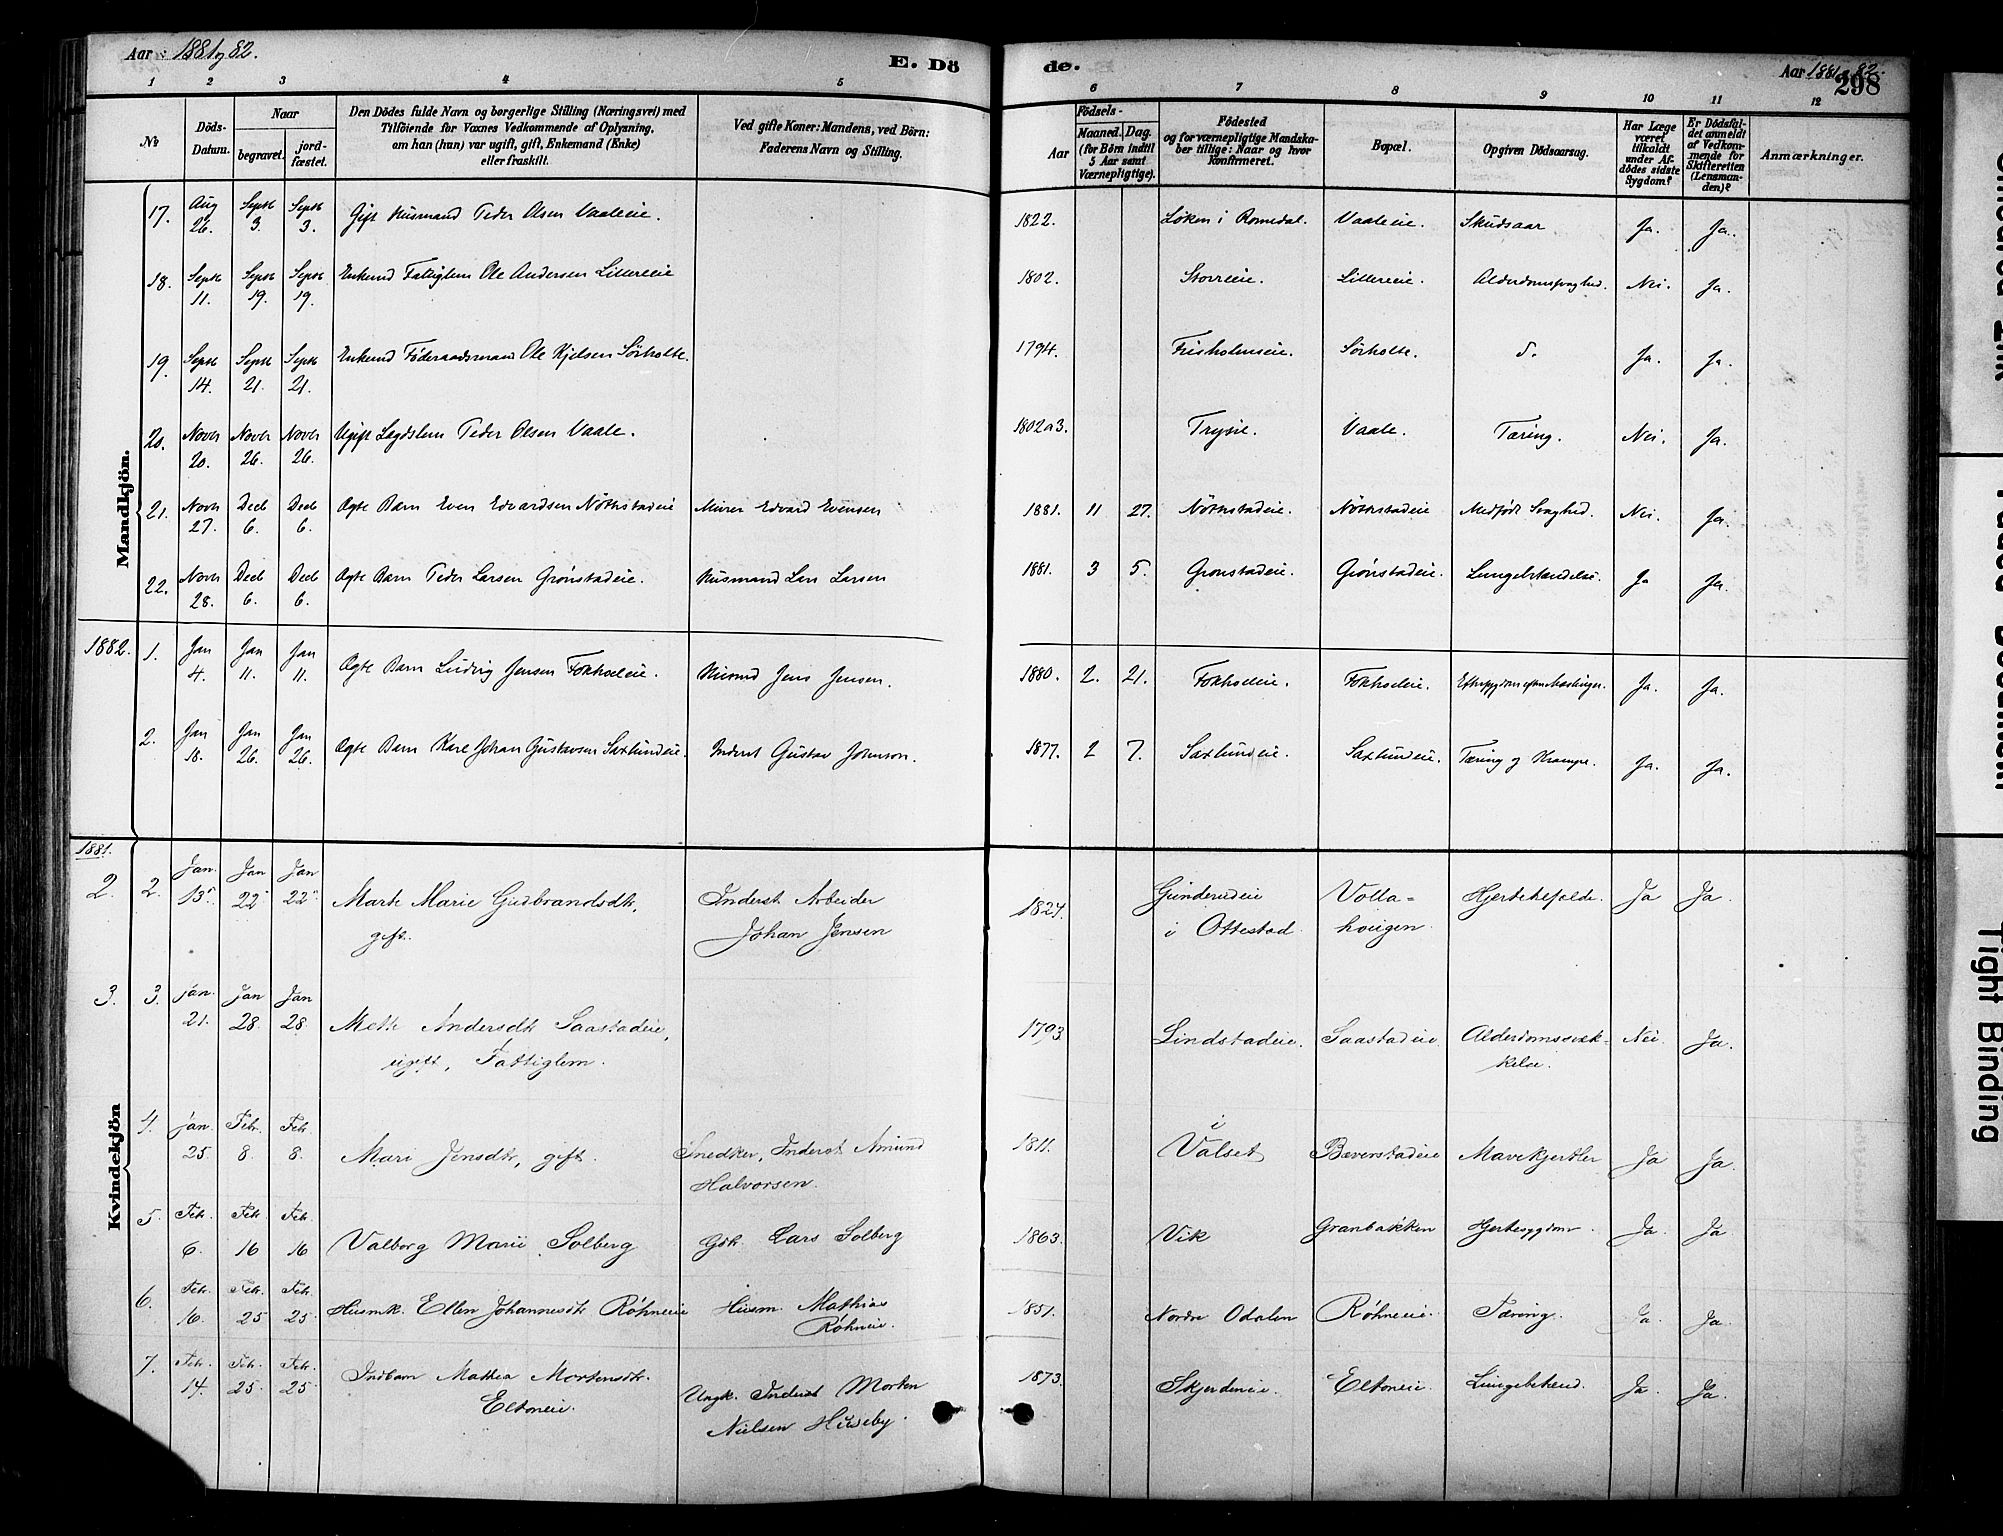 Aar: 1881 og 82.
E. Dö
de.
Aar 1881 82.
298
1 2 3 4 5 6 7 8 9 10 11 12
No
Döds-
Datum.
Naar
begravet.
jord-
fæstet.
Den Dödes fulde Navn og borgerlige Stilling (Næringsvei) med
Tilföiende for Voxnes Vedkommende af Oplysning,
om han (hun) var ugift, gift, Enkemand (Enke)
eller fraskilt.
Ved gifte Koner: Mandens, ved Börn:
Faderens Navn og Stilling.
Födsels-
Aar
Maaned. Dag.
(for Börn indtil
5 Aar samt
Værnepligtige).
Födested
og for værnepligtige Mandska-
ber tillige: Naar og hvor
Konfirmeret.
Bopæl.
Opgiven Dödsaarsag.
Har Læge
været
tilkaldt
under Af-
dödes sidste
Sygdom?
Er Dödsfal-
det anmeldt
af Vedkom-
mende for
Skifteretten
(Lensman-
den)?
Anmærkninger.
Mandkjön.
17. Aug 26. Septb 3. Septb 3. Gift Husmand Peder Olsen Vaaleeie. 1822. Löken i Romedal. Vaaleeie. Skudsaar Ja. Ja.
18. Septb 11. Septb 19. Septb 19. Enkemd Fattiglem Ole Andersen Lillereeie 1802. Storreeie. Lillereeie. Alderdomssvaghed. Nei. Ja.
19. Septb 14. Septb 21. Septb 21. Enkemd Föderaadsmand Ole Kjelsen Sörholte. 1794. Frisholmseie. Sörholte. d. Ja. Ja.
20. Novbr 20. Novbr 26. Novbr 26. Ugift Legdslem Peder Olsen Vaale. 1802 a 3. Trysil. Vaale. Tæring. Nei. Ja.
21. Novbr 27. Decb 6. Decb 6. Ægte Barn Even Edvardsen Nöthstadeie Murer Edvard Evensen 1881. 11 27. Nöthstadeie. Nöthstadeie Medfödt Svaghed. Nei. Ja.
22. Novbr 28. Decb 6. Decb 6. Ægte Barn Peder Larsen Grönstadeie. Husmand Lars Larsen 1881. 3 5. Grönstadeie. Grönstadeie. Lungebetændelse. Ja Ja.
1882. 1. Jan 4. Jan 11. Jan 11. Ægte Barn Ludvig Jensen Fokholeie. Jens Jensen. 1880. 2. 21. Fokholeie. Fokholeie. Eftersygdom efter Mæslinger. Ja. Ja.
2. Jan 18. Jan 26. Jan 26. Ægte Barn Karl Johan Gustavsen Saxlundeie. Inderst Gustav Johnson. 1877. 2 7. Saxlundeie. Saxlundeie. Tæring og Krampe. Ja. Ja.
1881.
Kvindekjön
2. 2. Jan. 13. Jan 22 Jan 22 Marte Marie Gudbrandsdtr, Inderst Arbeider 1824. Gunderudeie Volla- Hjertefeil. Ja Ja.
gift. Johan Jensen i Ottestad hougen
3. 3. Jan. 21. Jan 28. Jan 28. Mette Andersdtr Saastadeie, 1793. Lindstadeie. Saastadeie Alderdomssvæk- Nei Ja.
ugift, Fattiglem. kelse.
4. Jan. 25. Febr. 8. Febr 8. Mari Jensdtr, gift. Snedker, Inderst Amund 1811. i Valset Bæverstadeie Mavekjertler Ja Ja.
Halvorsen.
5. Febr. 6. Febr. 16 Febr. 16 Valborg Marie Solberg Gdb. Lars Solberg 1863. Vik Granbakken Hjertesygdom Ja. Ja
6. Febr. 16. Febr. 25 Febr. 25 Husmk. Ellen Johannesdtr Röhneeie Husm. Mathias 1851. Nordre Odalen Röhneeie. Tæring. Ja. Ja.
Röhneeie.
7. Febr. 14. Febr. 25. Febr. 25 Indbarn Mathea Mortensdtr. Ungk. Inderst Morten 1873. Skjerdeneie. Eltoneie. Lungebetænd. Ja. Ja.
Eltoneie. Nielsen Huseby.
Tight Binding